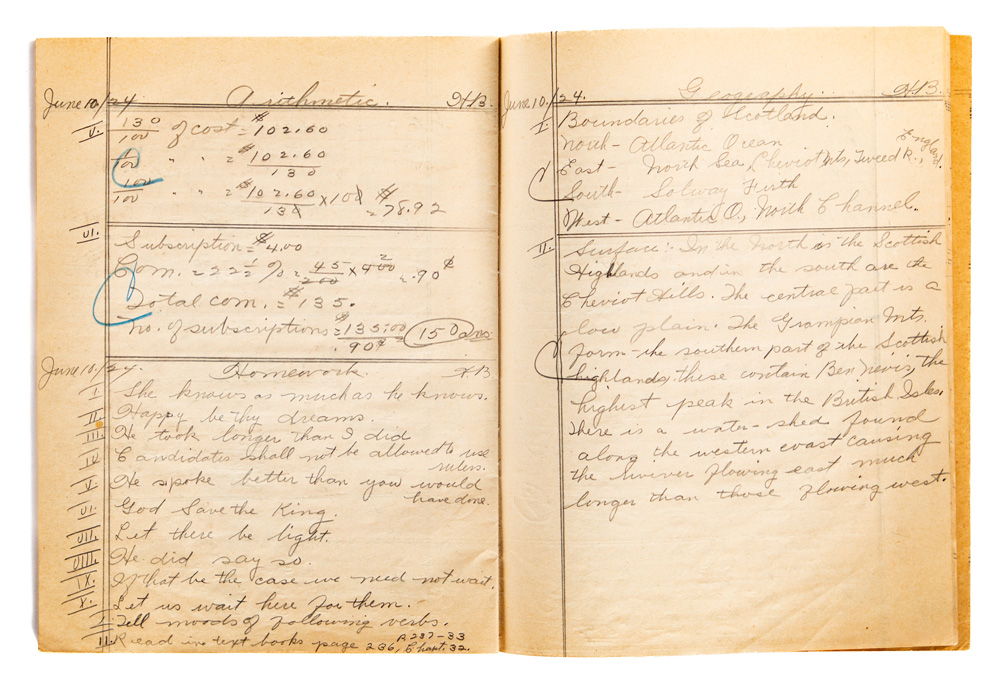 June 10/24. Arithmetic. H.B.
V. 130/100 of cost = $102.60
100 " " = $102.60/130
100/100 " " = $102.60/130 × 100 = $78.92
VI. Subscription = $4.00
Com. = 22 1/2 % = 45/200 × 400 = .90¢
Total com. = $135.
No. of subscriptions = $135.00/.90¢ = 150 ans
June 10/24. Homework. H.B.
I. She knows as much as he knows.
II. Happy be thy dreams.
III. He took longer than I did
IV Candidates shall not be allowed to use
rulers.
V. He spoke better than you would
have done.
VI. God Save the King.
VII. Let there be light.
VIII. He did say so.
IX. If that be the case we need not wait.
X. Let us wait here for them.
Tell moods of following verbs.
II. Read in text books page 236, Chapt. 32.
June 10/24. Geography. H.B.
I. Boundaries of Scotland.
North - Atlantic Ocean
East - North Sea, Cheviot Mts, Tweed R., England.
South - Solway Firth
West - Atlantic O., North Channel.
II. Surface:- In the North is the Scottish
Highlands and in the south are the
Cheviot Hills. The central part is a
low plain. The Grampian Mts.
form the southern part of the Scottish
highlands, these contain Ben Nevis, the
highest peak in the British Isles.
There is a water-shed found
along the western coast causing
the flowing east much
longer than those flowing west.